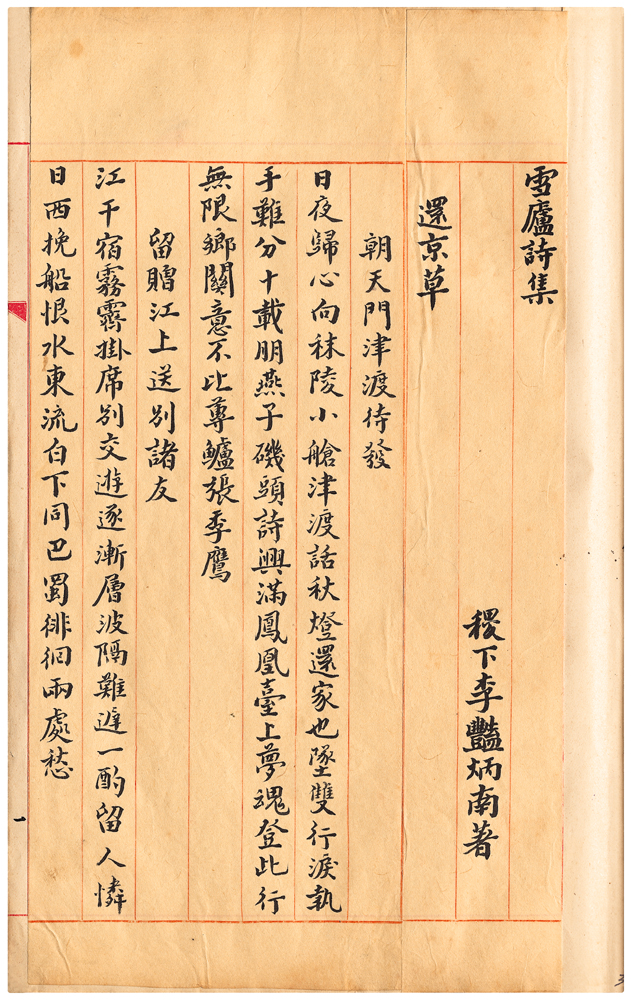 雪廬詩集
稷下李豔炳南著
還京草
朝天門津渡待發
日夜歸心向秣陵小艙津渡話秋燈還家也墜雙行淚執
手難分十載朋燕子磯頭詩興滿鳳凰臺上夢魂登此行
無限鄉關意不比蓴鱸張季鷹
留贈江上送別諸友
江干宿霧霽掛席別交遊逐漸層波隔難遲一酌留人憐
日西挽船恨水東流白下同巴蜀徘徊兩處愁
一